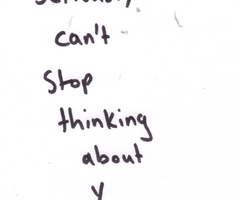 can't
Stop
thinking
about
y